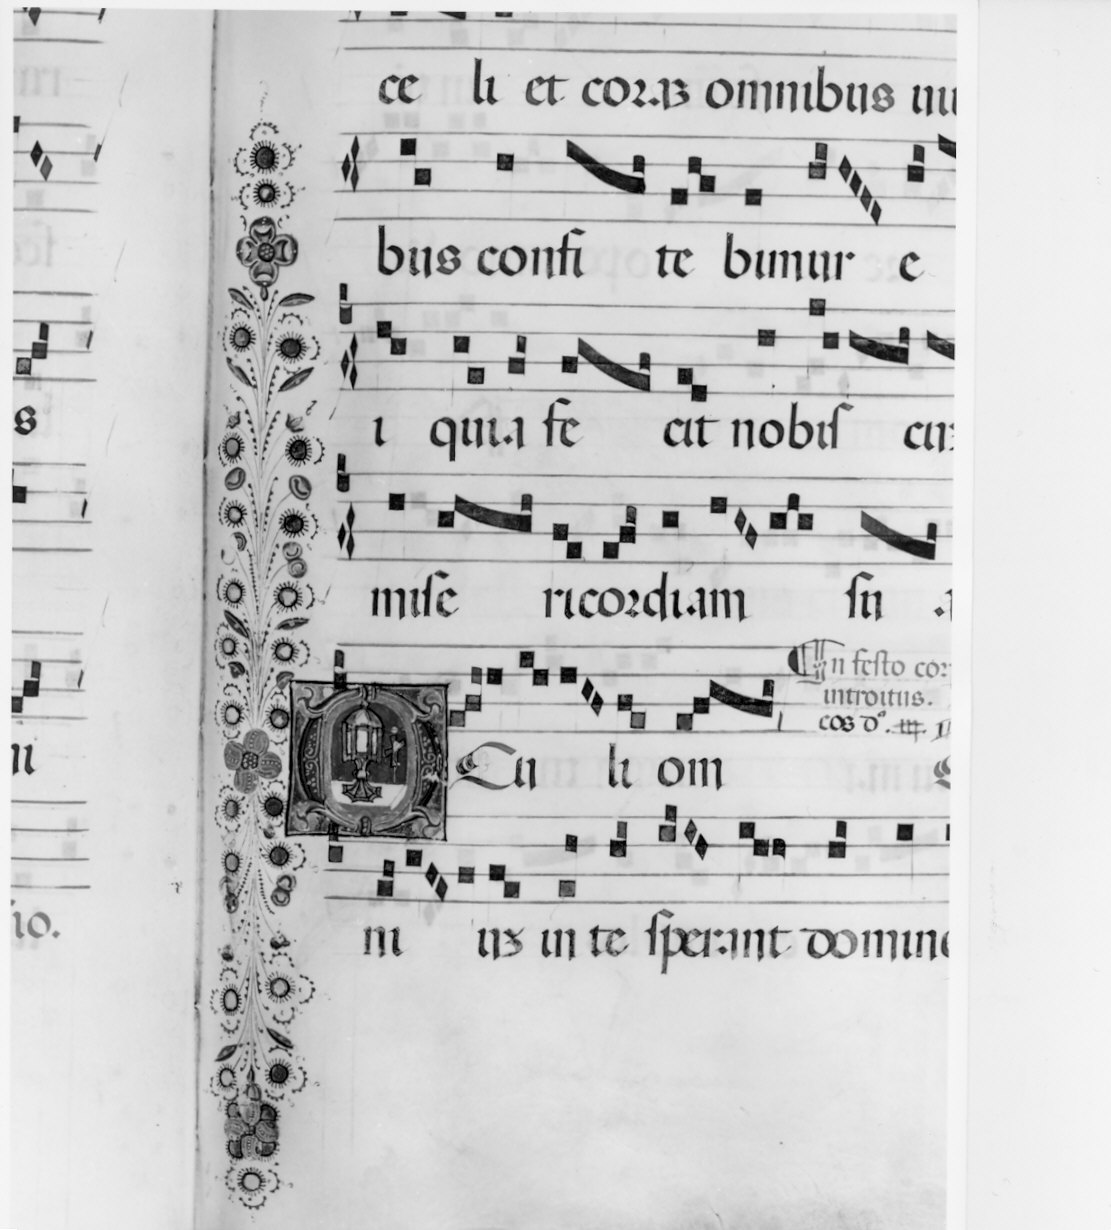 ce li et coraꝫ omnibus
bus confi te bimur e
i quia fe cit nobiſ
miſe ricordiam ſu a
In feſto cor
introitus.
O Cu li om
ni uꝫ in te ſperant domine
s